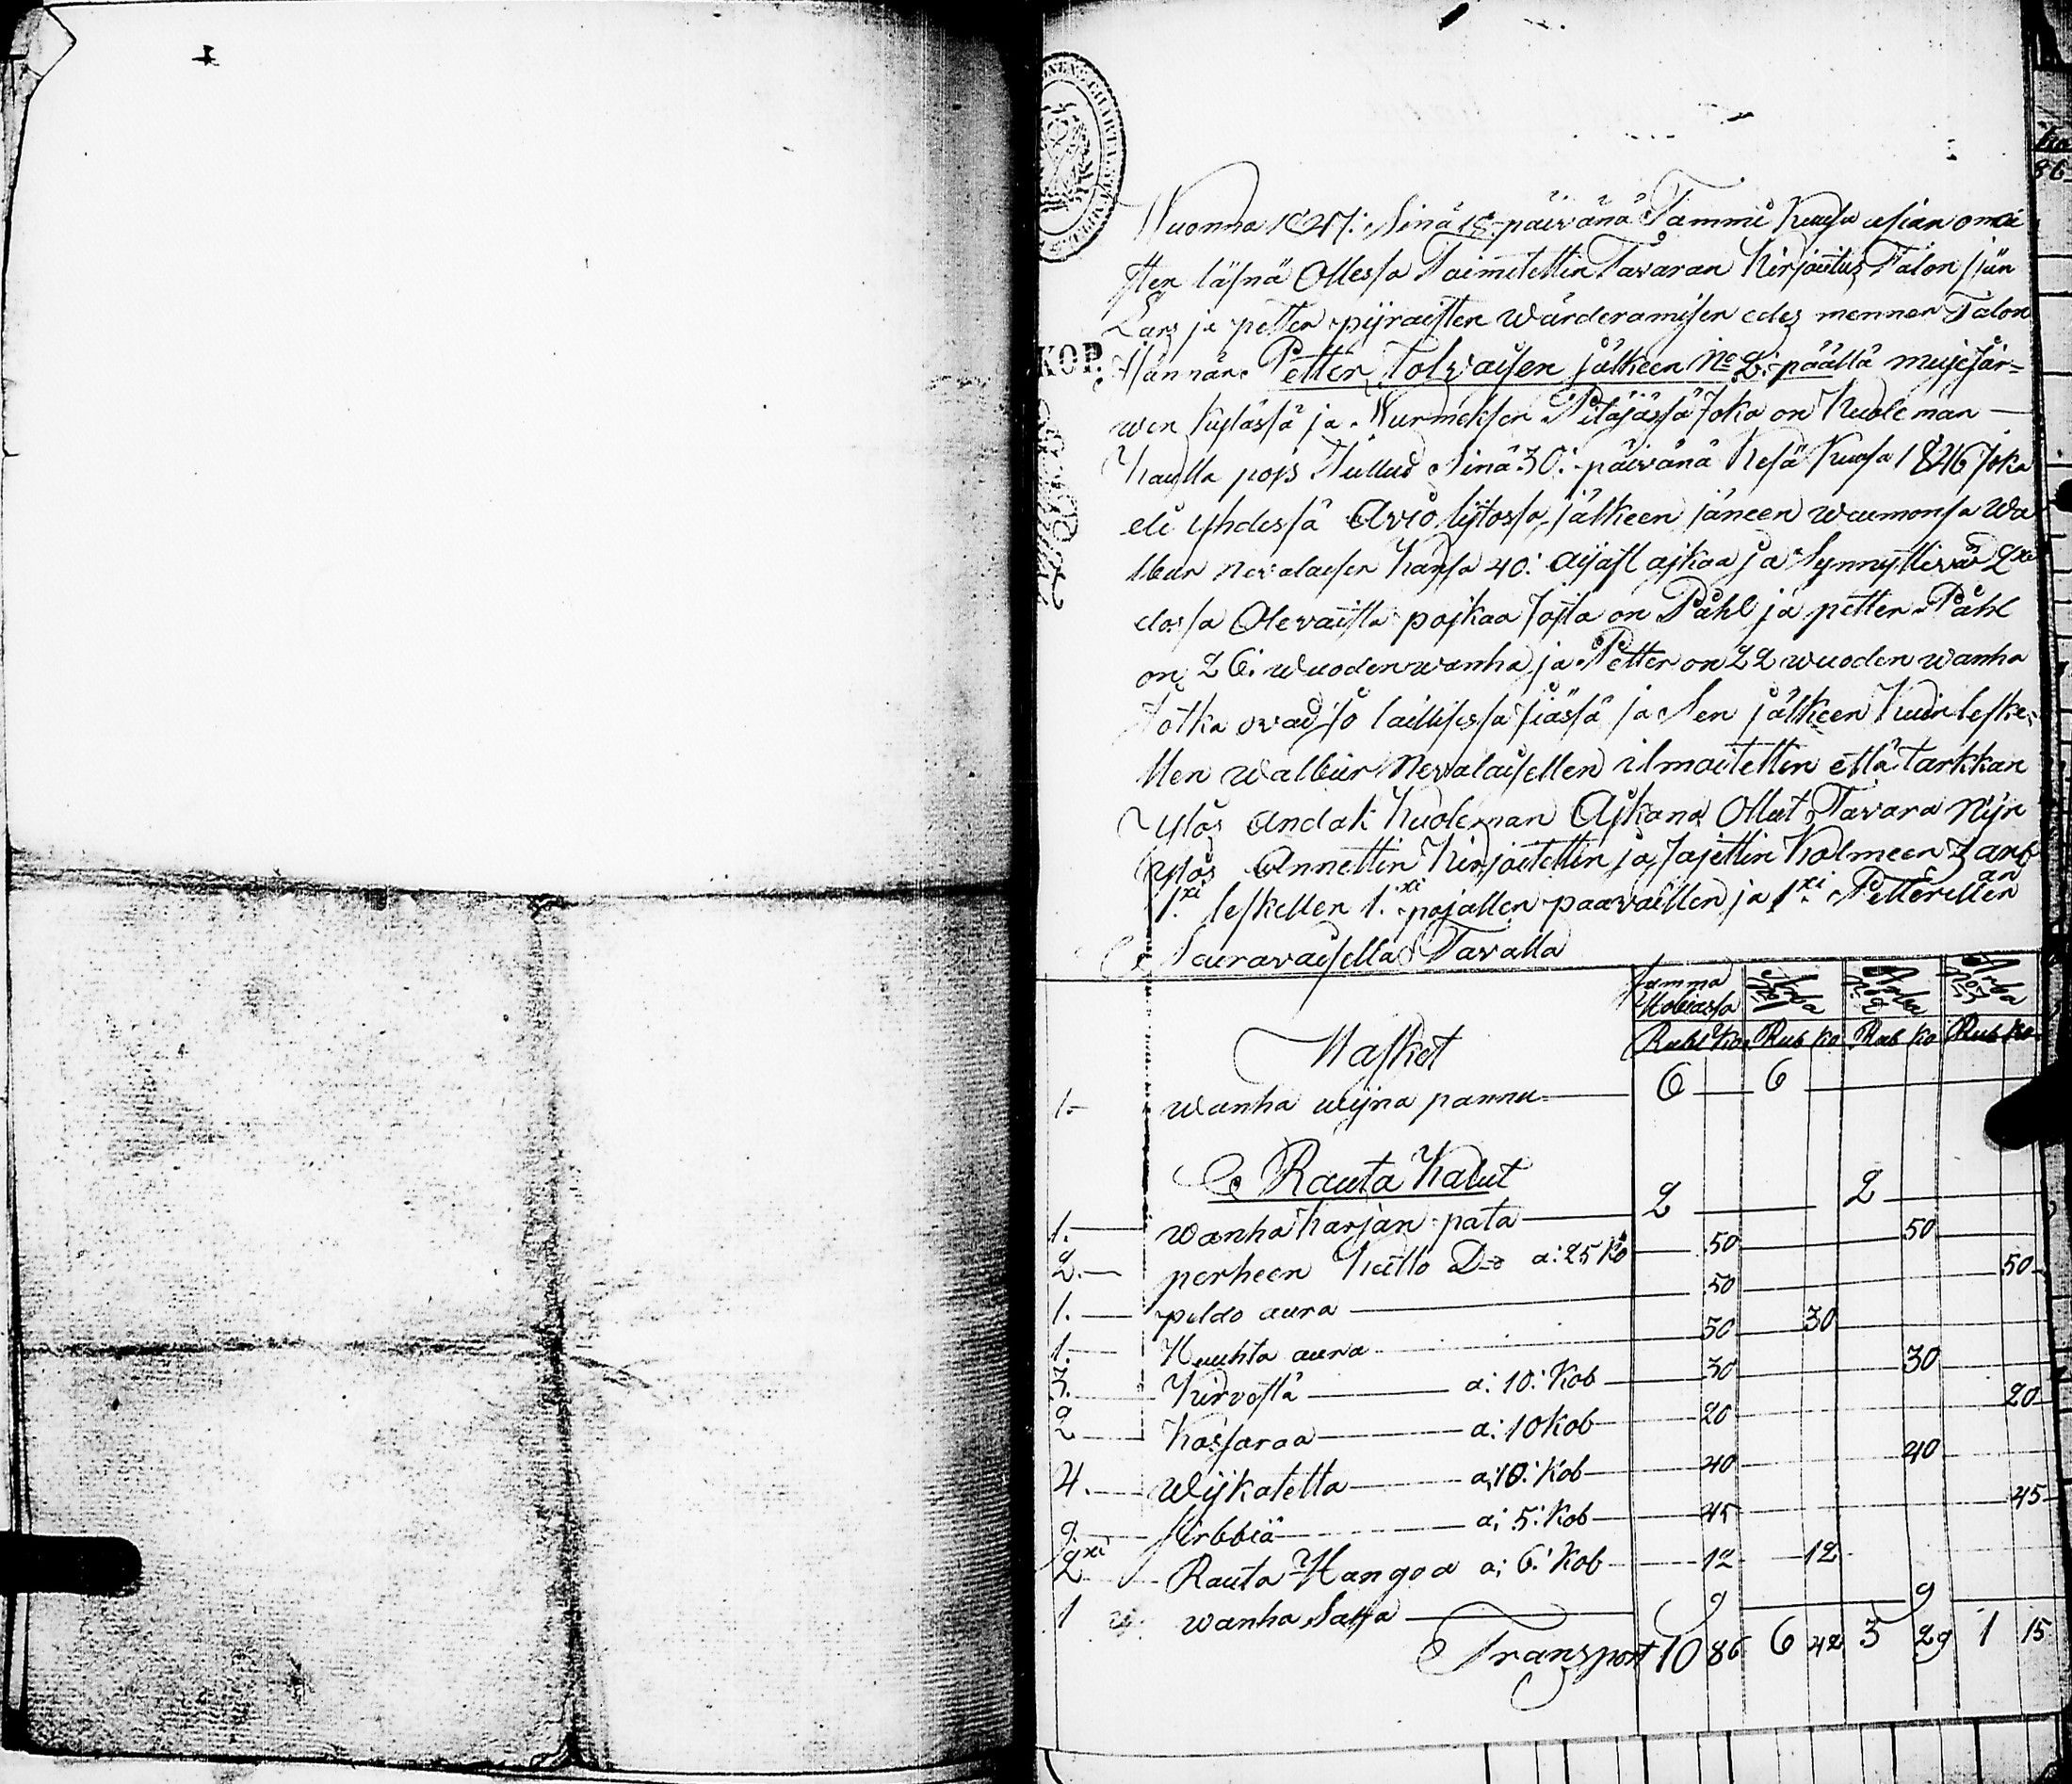 KOP.
Wuonna 1847: Sinä 18: päivänä Tammi Kuusa asian omai
sten läsnä Ollessa Toimitettin Tavaran Kirjoitus Talon
Lars ja petter pijraisten wärderamisen edes mennen Talon
Hännän Petter Tolvaisen jälkeen No 2: päällä mujejär=
wen kylässä ja Nurmeksen Pitäjässä Joka on Kuoleman
Kautta pojs Tullud Sinä 30: päivänä Kesä Kuusa 1846 Joka
eli yhdessä Avio lijtossa jälkeen jäneen waemonsa Wa
lbur Nevalaisen Kansa 40: ajast ajkaa ja Synnyttivä 2xi
elossa Olevaista pojkaa Josta on Påhl ja petter Påhl
on 26: wuoden wanha ja Petter on 22 wuoden wanha
Jotka ovad jo laillisessa iässä ja Sen jälkeen Kuin leske
llen Walbur Nevalaisellen ilmoitettin että tarkkan
Ylös Andak Kuoleman Ajkana Ollut Tavara Nijn
Ylös Annettin Kirjoitettin ja Jajettin Kolmeen 3 arb
an
1.xi leskellen 1.xi pojallen paavaillen ja 1xi Petterillen
Seuravaisella Tavalla
Summa Arba Arba Arba
Hobiassa No 1 No 2 No 3
Rubl Ko Rub Ko Rub Ko Rub Ko
Wasket
1. wanha wijna pannu 6 6
Rauta Kalut
1. wanha karjan pata 2 2
2. perheen Keitto Do a: 25 Ko 50 50
1. peldo aura 50 50
1. Huuhta aura 50 30
3. Kirvestä a: 10: Kob 30 30
2 Kassaraa a: 10 Kob 20 20
4. Wijkatetta a: 10: Kob 40 40
9 Sirbbiä a: 5: Kob 45 45
2xi Rauta Hangoa a: 6: Kob 12 12
1 wanha Saha 9 9
Transport 10 86 6 42 3 29 1 15